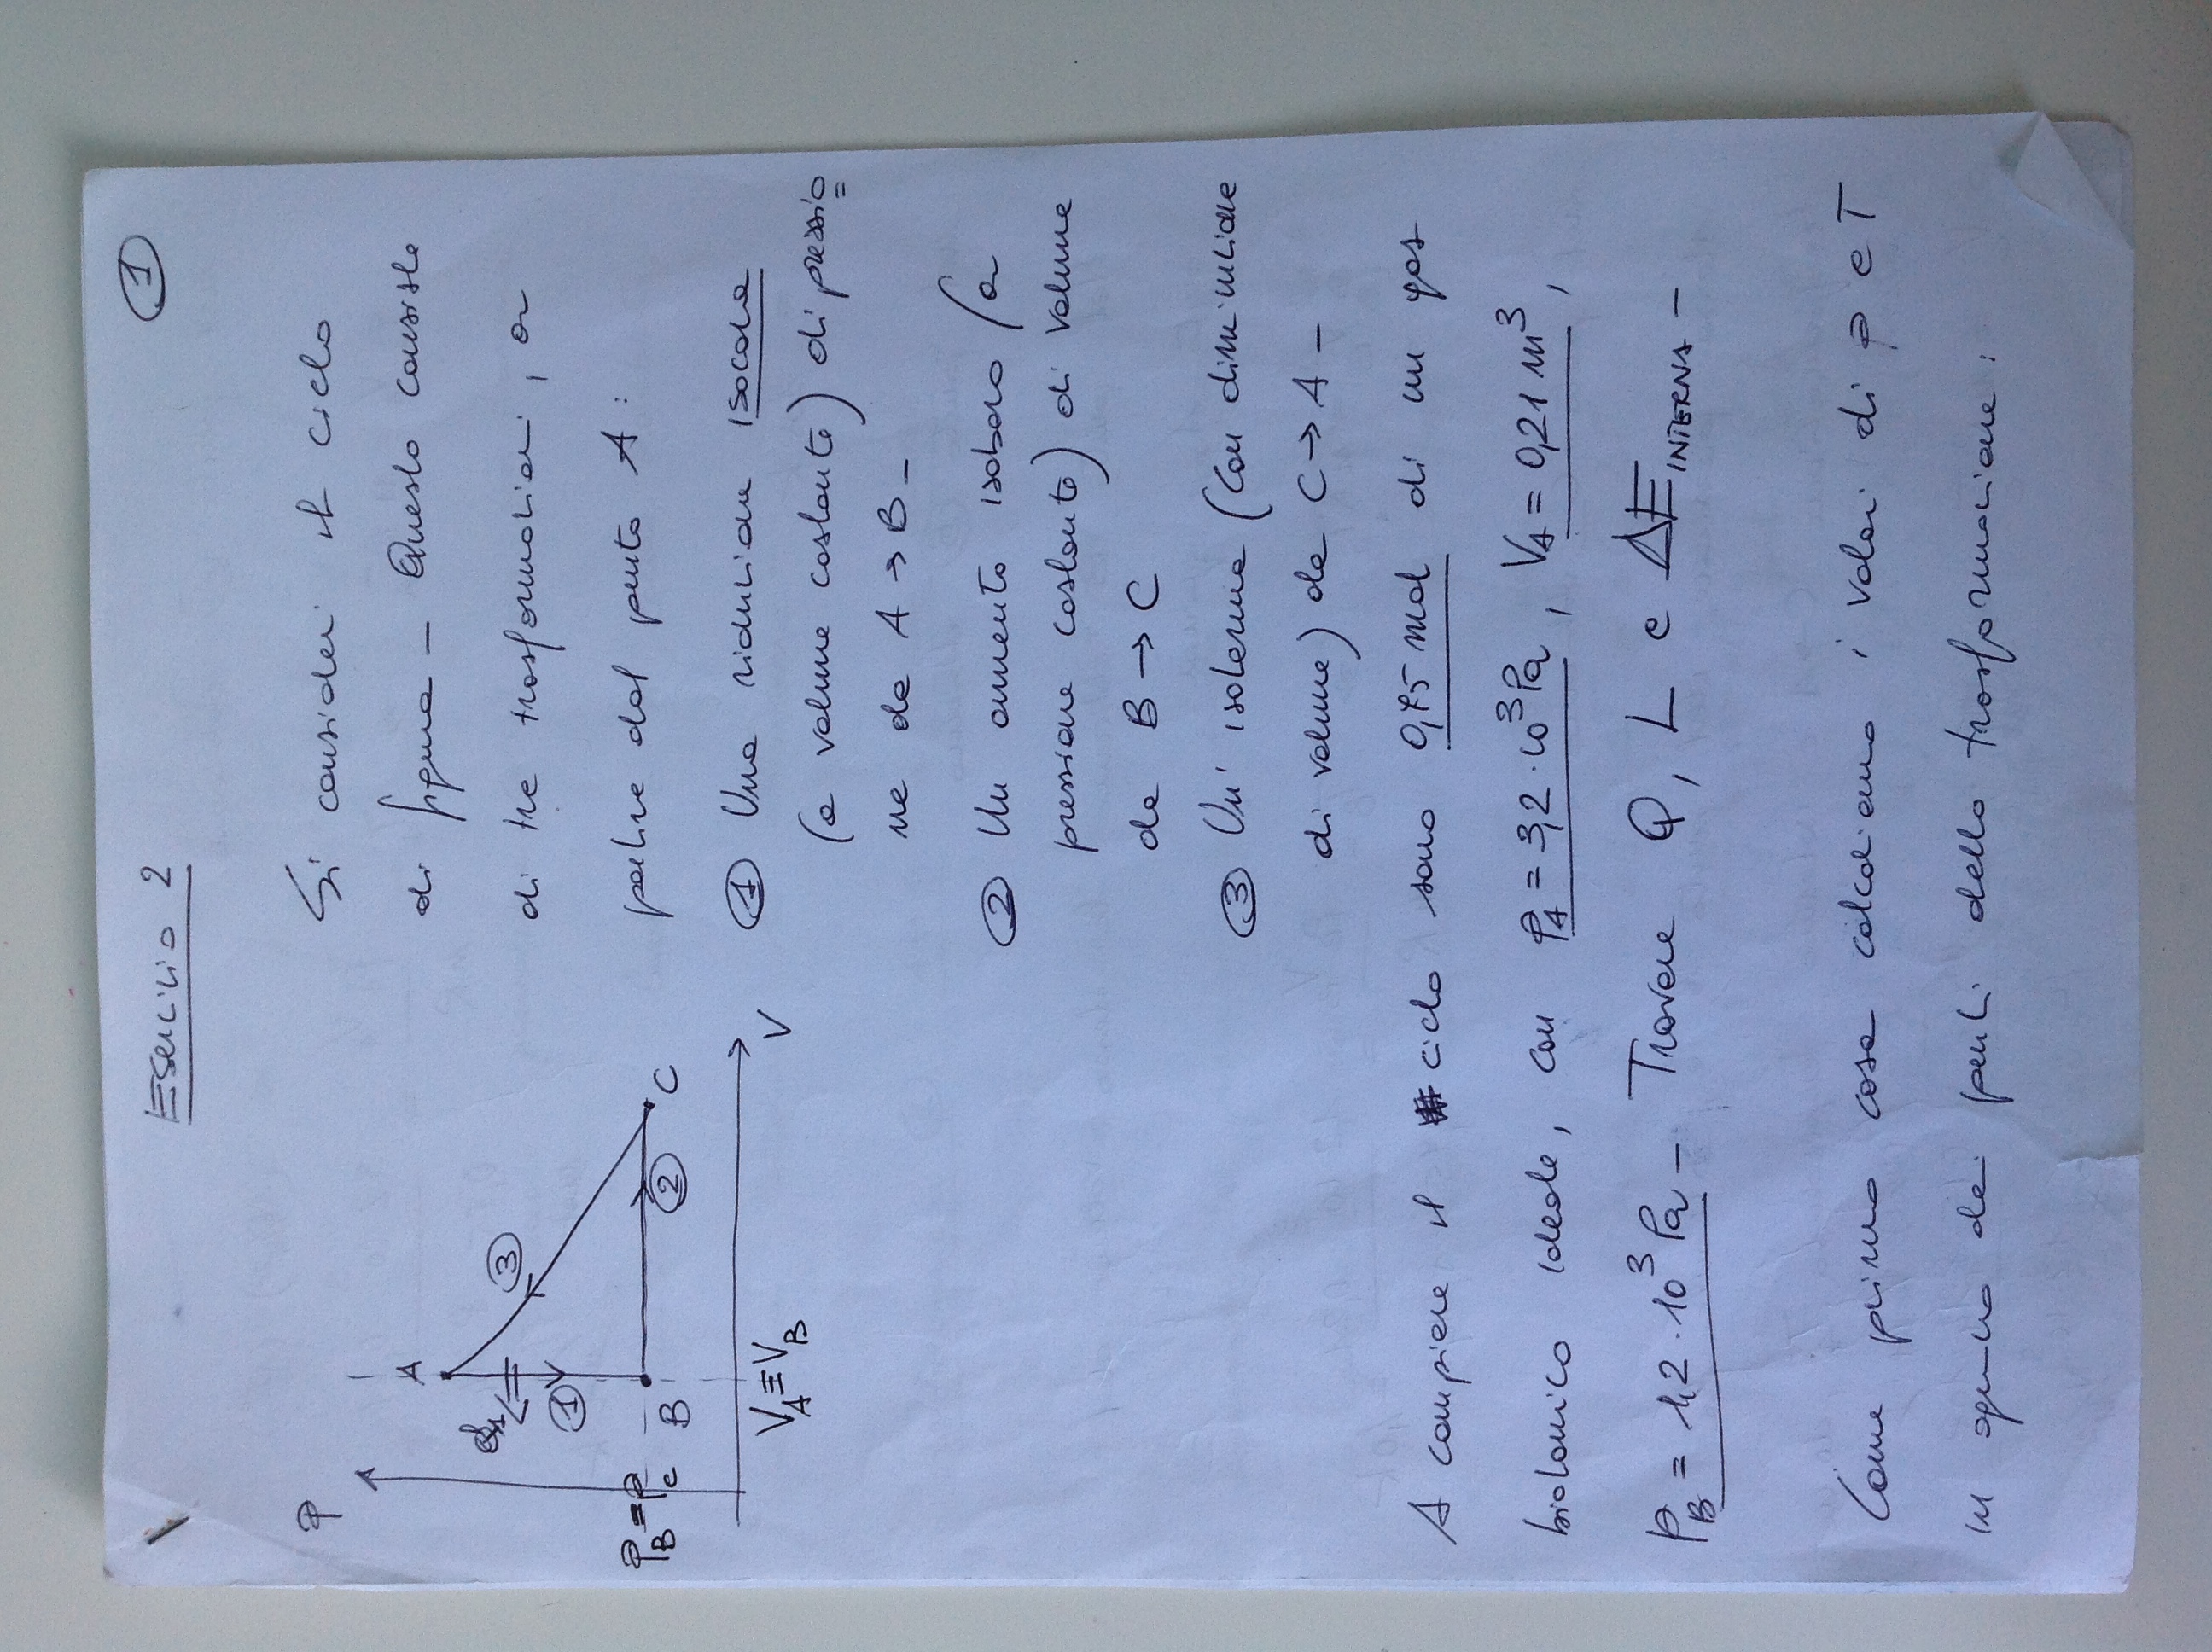 Esercizio 2
1
P
A
3
1
P_B = P_C
B
2
C
V_A ≡ V_B
V
Si consideri il ciclo
di figura - Questo consiste
di tre trasformazioni, a
partire dal punto A:
1 Una riduzione isocora
(a volume costante) di pressio
ne da A → B -
2 Un aumento isobaro (a
pressione costante) di volume
da B → C
3 Un' isoterma (con diminuzione
di volume) da C → A -
A compiere il ciclo sono 0,75 mol di un gas
biatomico ideale, con p_A = 3,2 · 10³ Pa, V_A = 0,21 m³,
p_B = 1,2 · 10³ Pa - Trovare Q, L e ΔE_INTERNA -
Come prima cosa calcoliamo i valori di p e T
in ognuno dei punti della trasformazione: